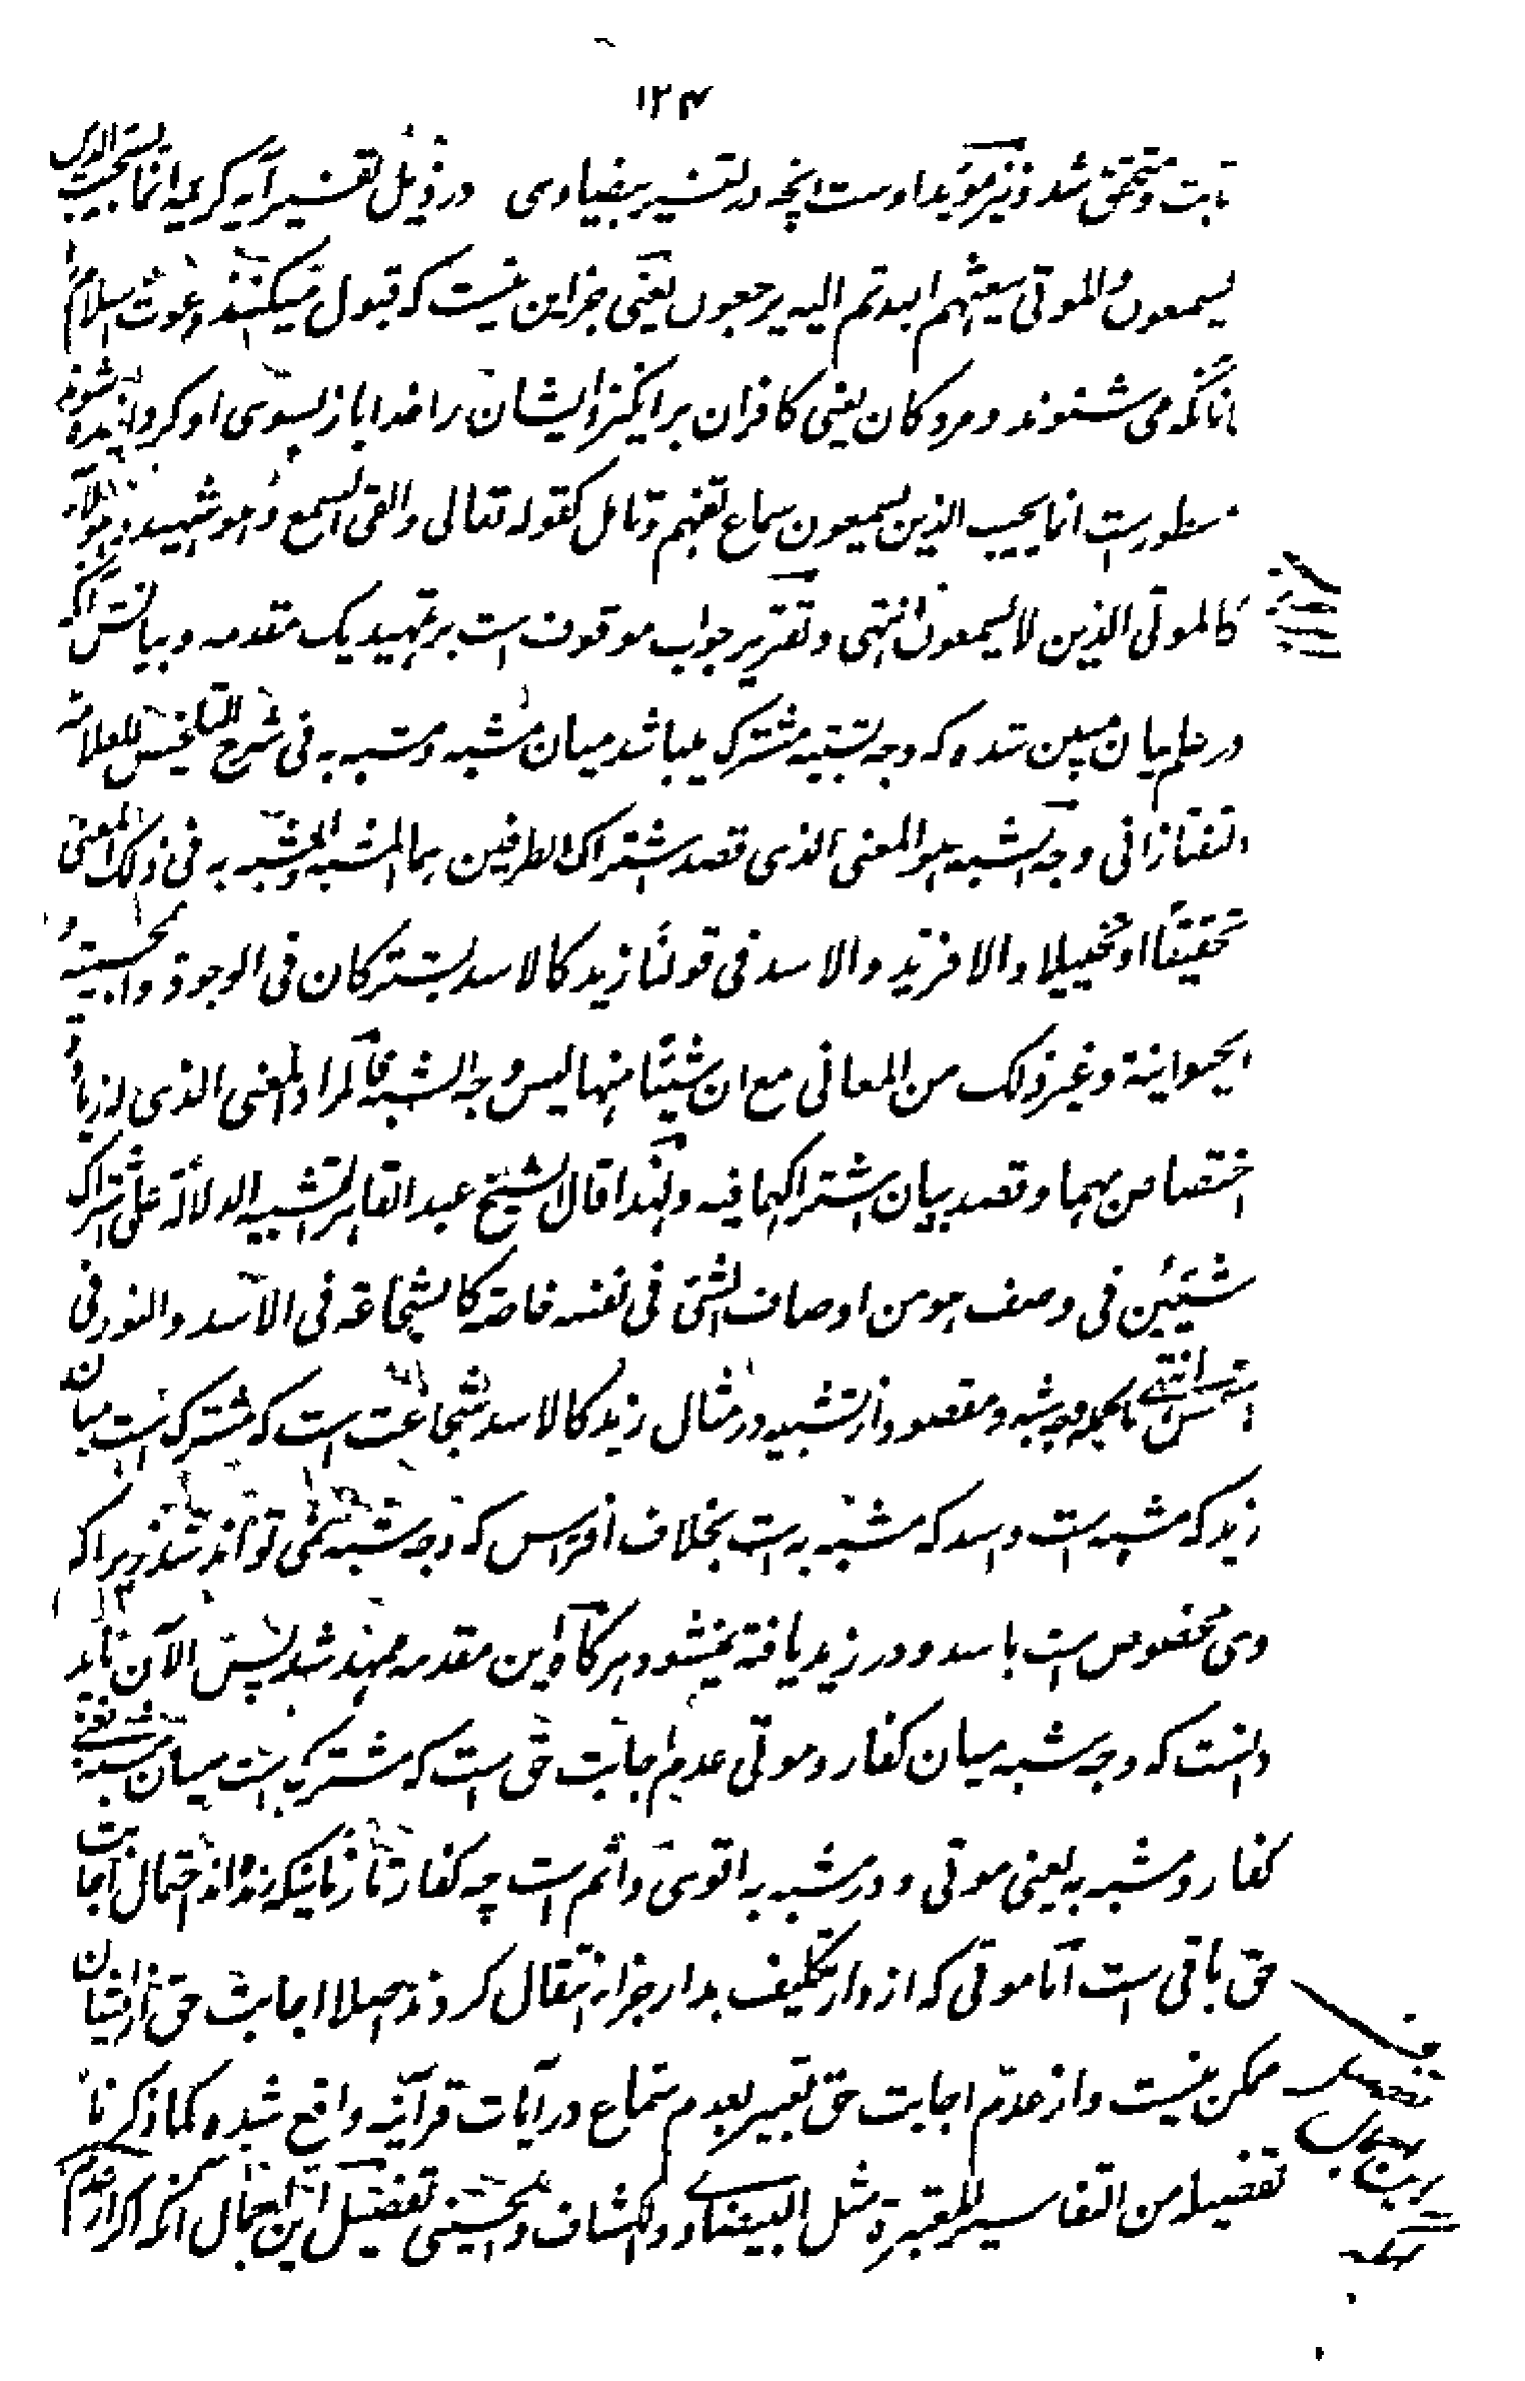 ۱۲۴
ثابت و متحقق شد و نیز مؤید اوست انچه در تفسیر بیضاوی در ذیل تفسیر آیه کریمه انما یستجیب الذین
یسمعون والموتی یبعثهم الله ثم الیه یرجعون یعنی جز این نیست که قبول میکنند دعوت اسلام
آنانکه می شنوند و مردگان یعنی کافران برانگیزد ایشان را خدا باز بسوی او گردانیده شوند
مسطورست انما یجیب الذین یسمعون سماع تفهم وتامل کقوله تعالی والقی السمع وهو شهید وهؤلاء
کالموتی الذین لا یسمعون انتهی و تقریر جواب موقوف است بر تمهید یک مقدمه و بیانش آنکه
در علم بیان مبین شده که وجه تشبیه مشترک میباشد میان مشبه و مشبه به فی شرح التلخیص للعلامة
التفتازانی وجه الشبه هو المعنی الذی قصد اشتراک الطرفین بها المشبه والمشبه به فی ذلک المعنی
تحقیقًا او تخییلا والا فزید والاسد فی قولنا زید کالاسد یشترکان فی الوجود والجسمیة و
الحیوانیة وغیر ذلک من المعانی مع ان شیئًا منها لیس وجه الشبه فالمراد المعنی الذی له زیادة
اختصاص بهما وقصد بیان اشتراکهما فیه ولهذا قال الشیخ عبد القاهر التشبیه الدلالة علی اشتراک
شیئین فی وصف هو من اوصاف الشئ فی نفسه خاصة کالشجاعة فی الاسد والنور فی
الشمس انتهی بالجمله وجه شبه و مقصود از تشبیه در مثال زید کالاسد شجاعت است که مشترک است میان
زید که مشبه است و اسد که مشبه به است بخلاف افتراس که وجه شبه نمی تواند شد چرا که
وی مخصوص است باسد و در زید یافته نمیشود هرگاه این مقدمه ممهد شد پس الآن باید
دانست که وجه شبه میان کفار و موتی عدم اجابت حق است که مشترک است میان مشبه یعنی
کفار و مشبه به یعنی موتی و در مشبه به اقوی و اتم است چه کفار تا زمانیکه زنده اند احتمال اجابت
حق باقی است اما موتی که از دار تکلیف بدار جزا انتقال کردند اصلا اجابت حق از ایشان
ممکن نیست و از عدم اجابت حق تعبیر بعدم سماع در آیات قرآنیه واقع شده کما ذکرنا
تفصیله من التفاسیر المعتبرة مثل البیضاوی والکشاف والحسینی تفصیل این اجمال آنکه اگر از عدم